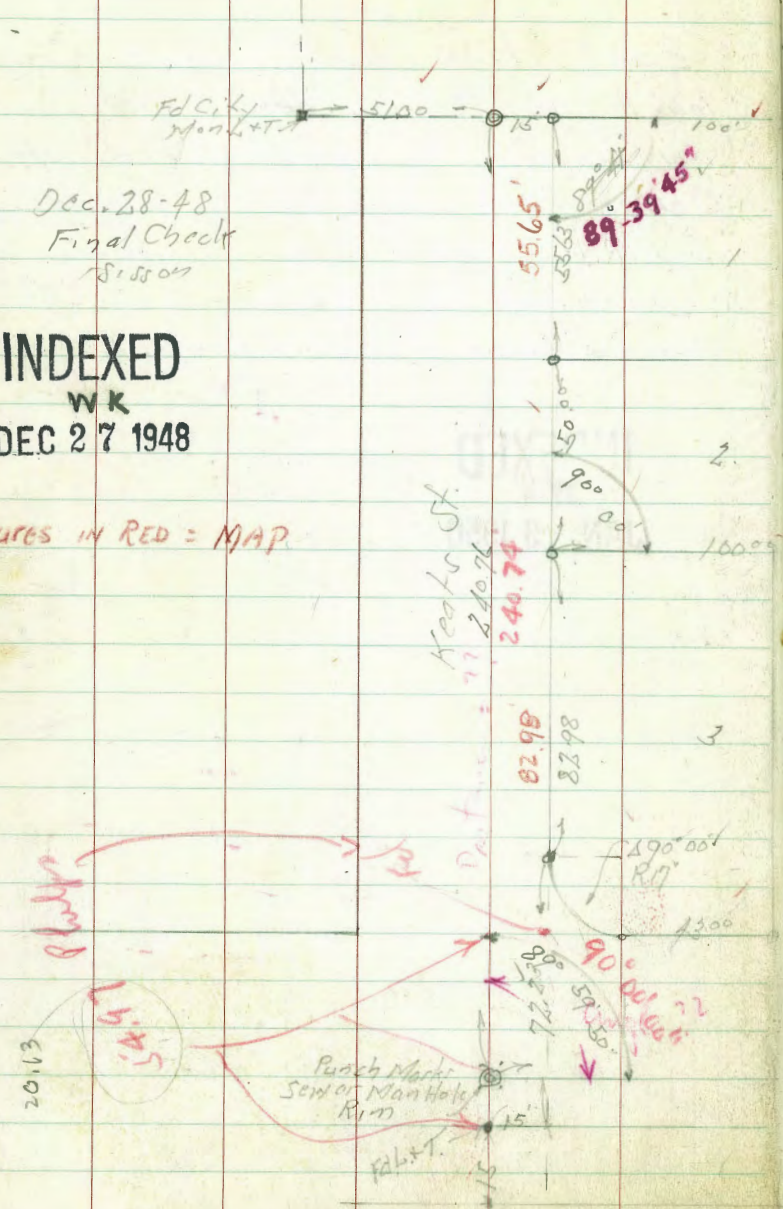 Fd City
Mon L+T
51.00
15'
100'
Dec. 28-48
Final Check
Sisson
55.65'
55.63
89°
89°-39'45"
1
INDEXED
WK
DEC 27 1948
50.00
90°
00'
2
100.00
ures IN RED = MAP
Keats St.
240.76
240.74
82.98
82.98
3
Δ90°00'
R17'
90° 00'
59' 50"
72.23
54.97
20.13
Punch Marks
Sewer Man Hole
Rim
15'
Fd L+T.
15